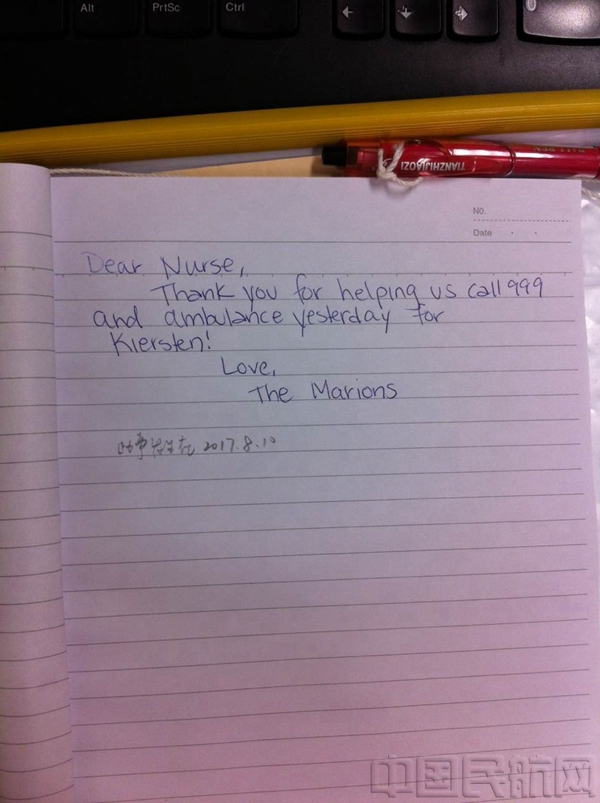 Alt
PrtSc
Ctrl
TIANZHIJIAOZI
NO.
Date
Dear Nurse,
Thank you for helping us call 999
and ambulance yesterday for
Kiersten!
Love,
The Marions
2017.8.10
中国民航网